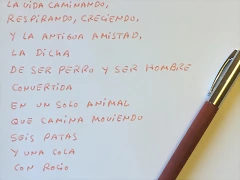 LA VIDA CAMINANDO,
RESPIRANDO, CRECIENDO,
Y LA ANTIGUA AMISTAD,
LA DICHA
DE SER PERRO Y SER HOMBRE
CONVERTIDA
EN UN SOLO ANIMAL
QUE CAMINA MOVIENDO
SEIS PATAS
Y UNA COLA
CON ROCÍO